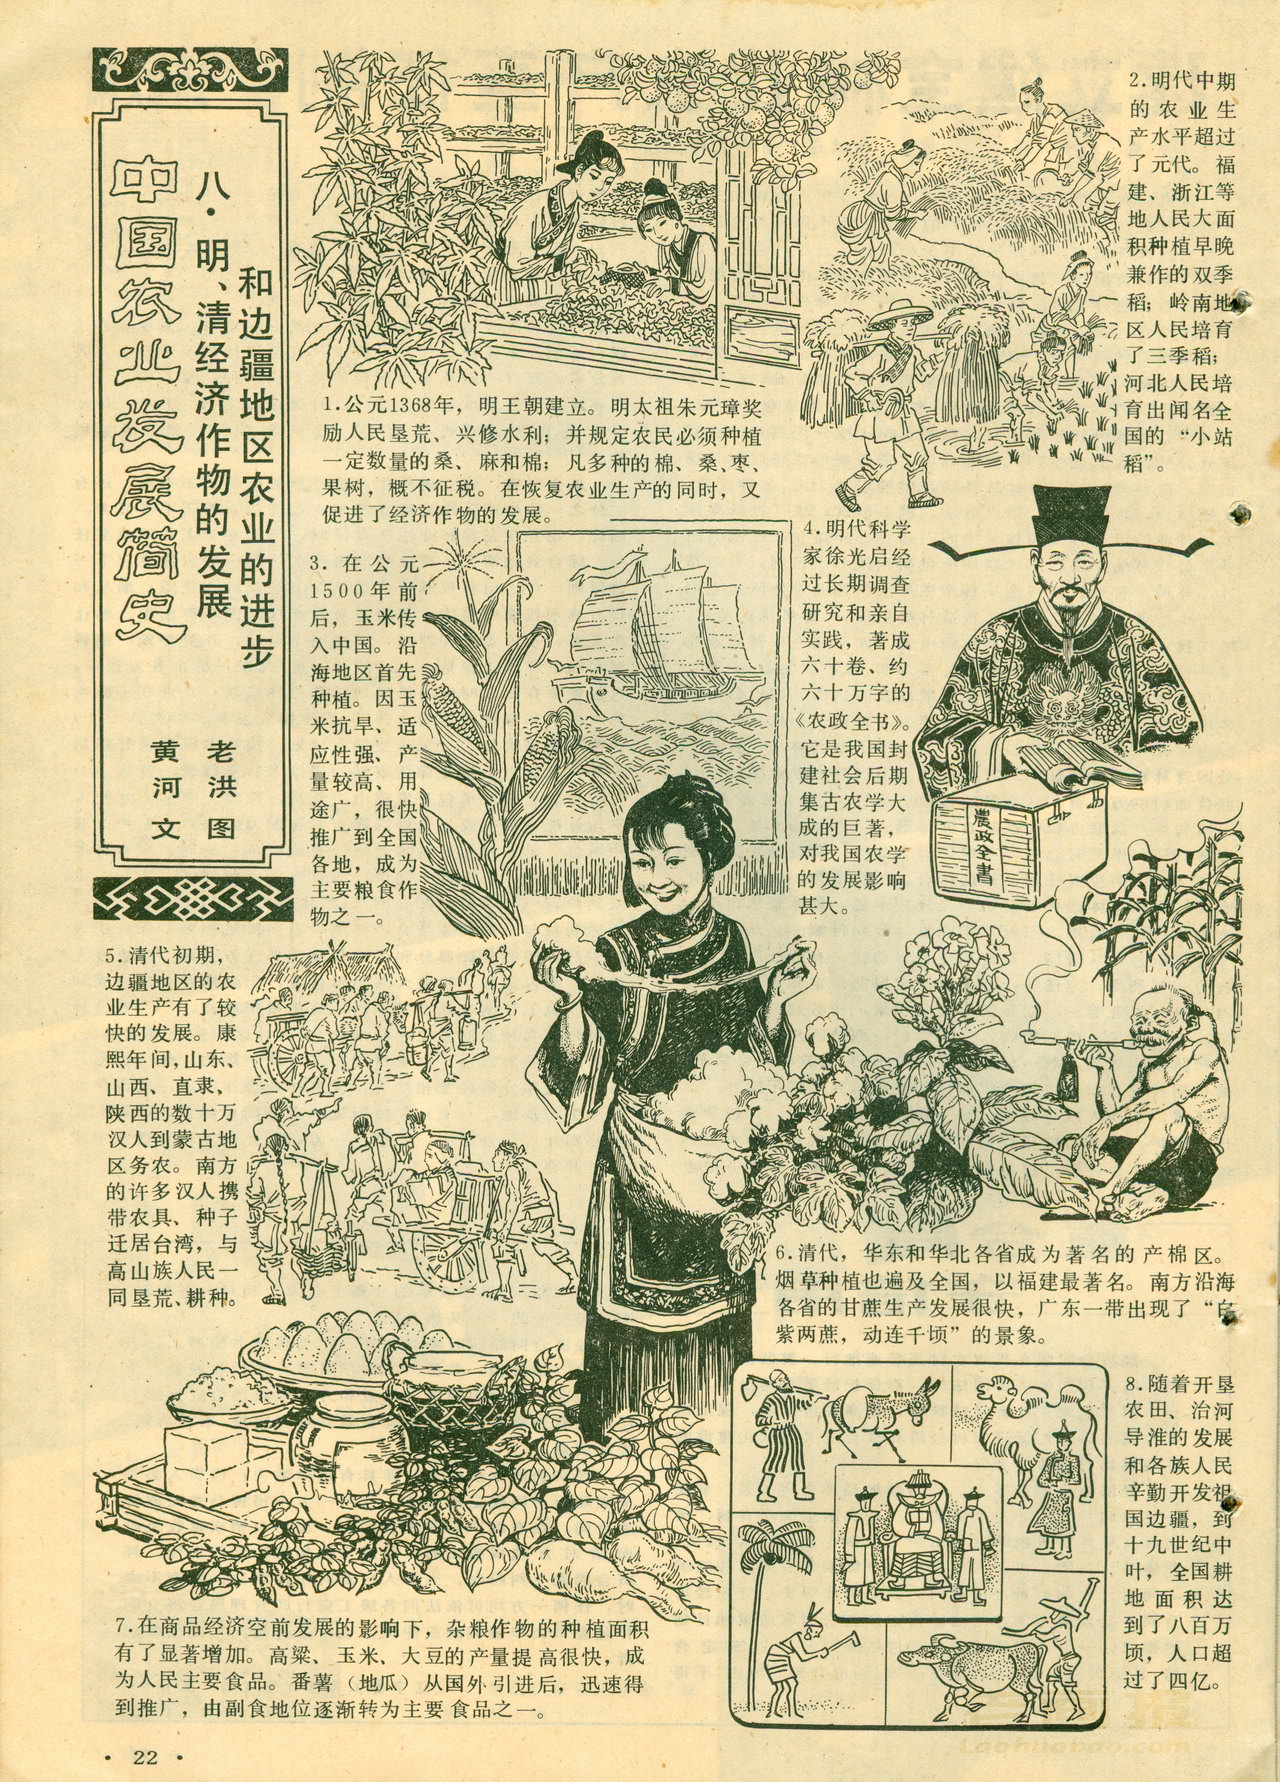 中国农业发展简史
八·明、清经济作物的发展
和边疆地区农业的进步
老洪图
黄河文
1.公元1368年，明王朝建立。明太祖朱元璋奖
励人民垦荒、兴修水利；并规定农民必须种植
一定数量的桑、麻和棉；凡多种的棉、桑、枣、
果树，概不征税。在恢复农业生产的同时，又
促进了经济作物的发展。
2.明代中期
的农业生
产水平超过
了元代。福
建、浙江等
地人民大面
积种植早晚
兼作的双季
稻；岭南地
区人民培育
了三季稻；
河北人民培
育出闻名全
国的“小站
稻”。
3.在公元
1500年前
后，玉米传
入中国。沿
海地区首先
种植。因玉
米抗旱、适
应性强、产
量较高、用
途广，很快
推广到全国
各地，成为
主要粮食作
物之一。
4.明代科学
家徐光启经
过长期调查
研究和亲自
实践，著成
六十卷、约
六十万字的
《农政全书》。
它是我国封
建社会后期
集古农学大
成的巨著，
对我国农学
的发展影响
甚大。
農政全書
5.清代初期，
边疆地区的农
业生产有了较
快的发展。康
熙年间，山东、
山西、直隶、
陕西的数十万
汉人到蒙古地
区务农。南方
的许多汉人携
带农具、种子
迁居台湾，与
高山族人民一
同垦荒、耕种。
6.清代，华东和华北各省成为著名的产棉区。
烟草种植也遍及全国，以福建最著名。南方沿海
各省的甘蔗生产发展很快，广东一带出现了“白
紫两蔗，动连千顷”的景象。
7.在商品经济空前发展的影响下，杂粮作物的种植面积
有了显著增加。高粱、玉米、大豆的产量提高很快，成
为人民主要食品。番薯（地瓜）从国外引进后，迅速得
到推广，由副食地位逐渐转为主要食品之一。
8.随着开垦
农田、治河
导淮的发展
和各族人民
辛勤开发祖
国边疆，到
十九世纪中
叶，全国耕
地面积达
到了八百万
顷，人口超
过了四亿。
·22·
Laohuabao.com